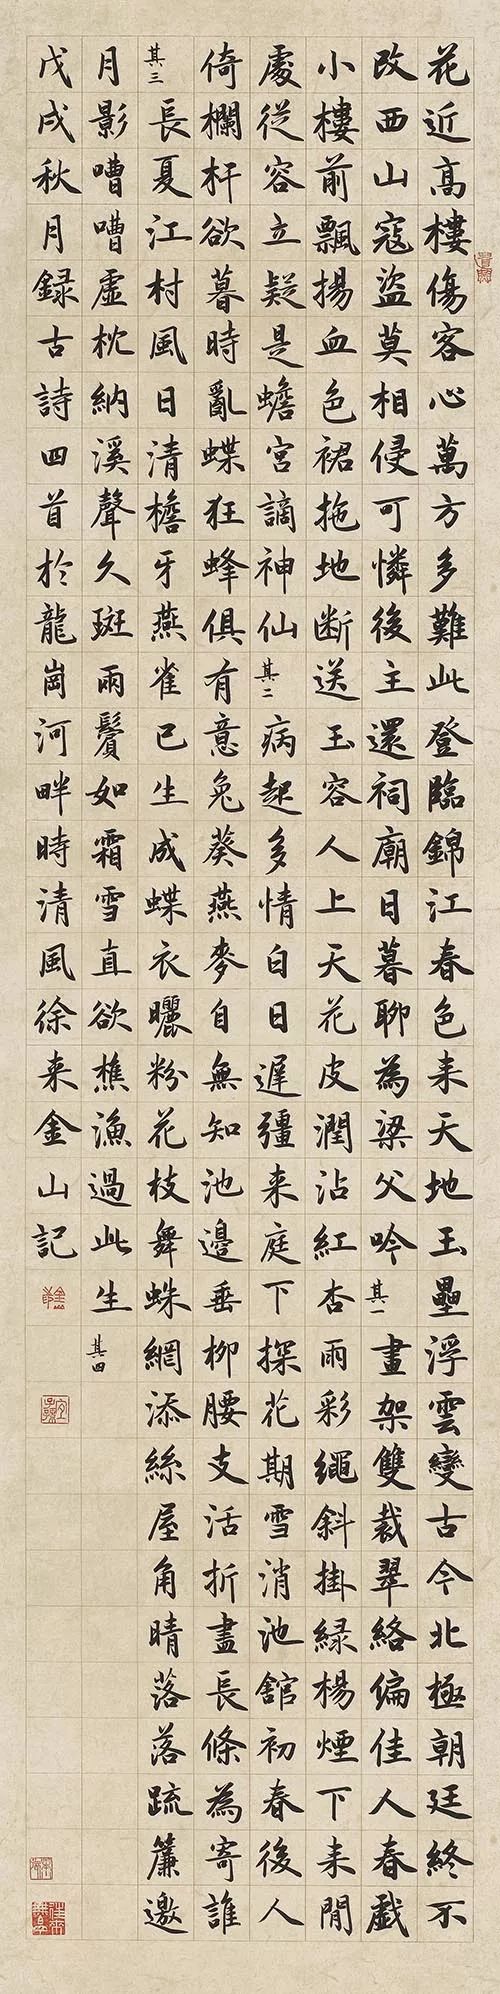 花近高樓傷客心萬方多難此登臨錦江春色来天地玉壘浮雲變古今北極朝廷終不
改西山寇盜莫相侵可憐後主還祠廟日暮聊為梁父吟其一畫架雙裁翠絡偏佳人春戲
小樓前飄揚血色裙拖地断送玉容人上天花皮潤沾紅杏雨彩繩斜掛緑楊煙下来閒
處從容立疑是蟾宮謫神仙其二病起多情白日遲彊来庭下探花期雪消池舘初春後人
倚欄杆欲暮時亂蝶狂蜂俱有意兔葵燕麥自無知池邊垂柳腰支活折盡長條為寄誰
其三長夏江村風日清檐牙燕雀已生成蝶衣曬粉花枝舞蛛網添絲屋角晴落落疏簾邀
月影嘈嘈虛枕納溪聲久斑兩鬢如霜雪直欲樵漁過此生其四
戊戌秋月録古詩四首於龍崗河畔時清風徐来金山記